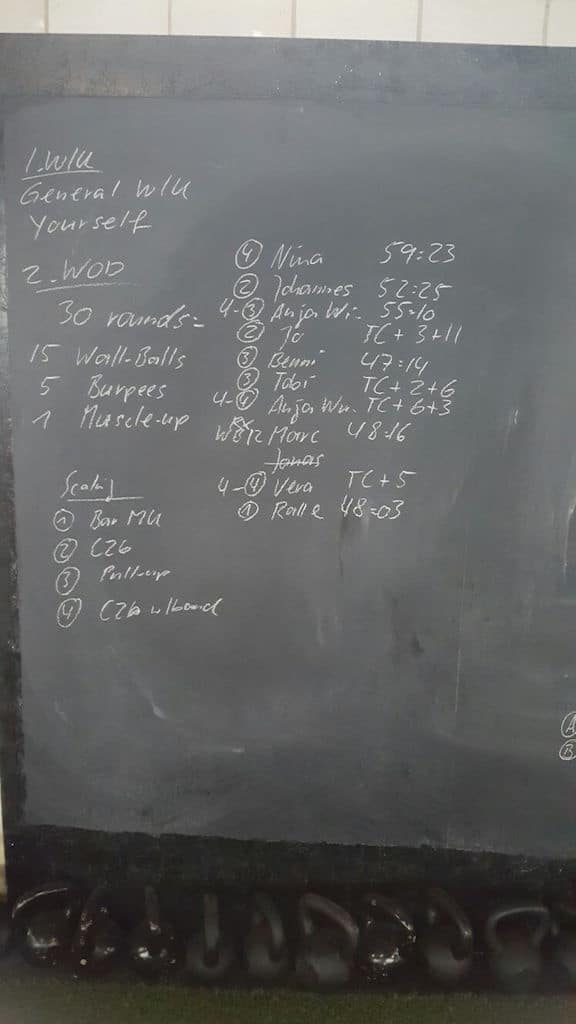 1. W/U
General W/U
Yourself
2. WOD
30 rounds:
15 Wall-Balls
5 Burpees
1 Muscle-up
Scaling
① Bar MU
② C2b
③ Pull-up
④ C2b w/band
④ Nina 59:23
② Johannes 52:25
4-③ Anja Wi. 55:10
② Jo TC + 3+11
③ Benni 47:14
③ Tobi TC + 2+6
4-④ Anja Wu. TC + 6+3
Rx Marc 48:16
Jonas
4-④ Vera TC + 5
① Ralle 48:03
A
B